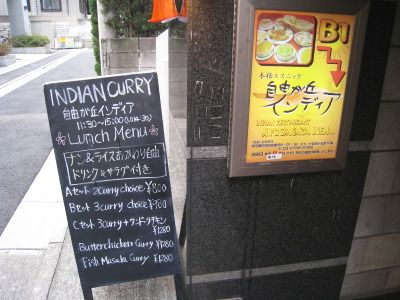 INDIAN CURRY
自由が丘インディア
11:30-15:00
Lunch Menu
ナン&ライスおかわり自由
ドリンク&サラダ付き
Aセット 2curry choice ¥800
Bセット 3curry choice
Cセット 3curry+タンドーリチキン
¥1280
Butterchicken Curry ¥1280
Fish Masala Curry ¥1280
B1
本格エスニック
自由が丘
インディア
INDIAN RESTAURANT
JIYUGAOKA INDIA